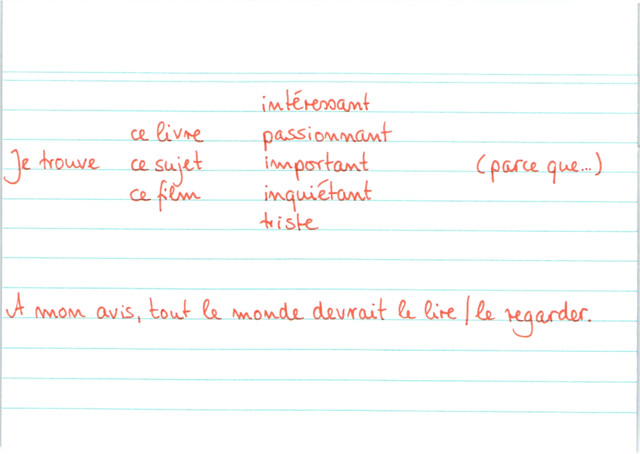 intéressant
ce livre passionnant
Je trouve ce sujet important (parce que...)
ce film inquiétant
triste
A mon avis, tout le monde devrait le lire / le regarder.